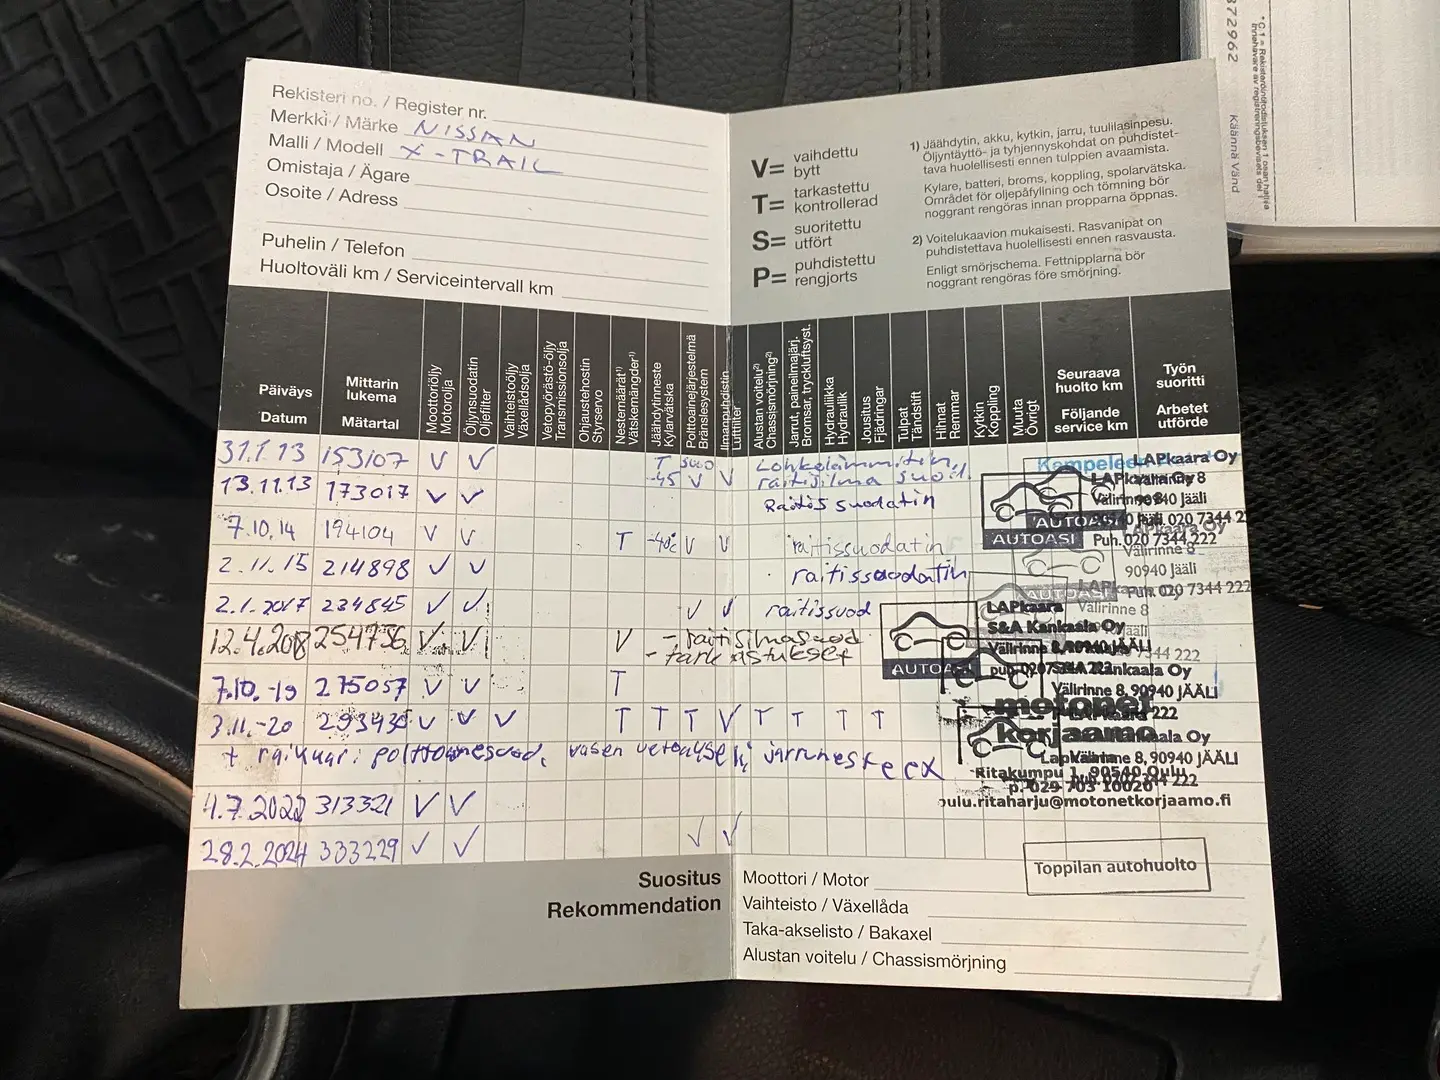 Rekisteri no. / Register nr.
Merkki / Märke NISSAN
Malli / Modell X-TRAIL
Omistaja / Ägare
Osoite / Adress
Puhelin / Telefon
Huoltoväli km / Serviceintervall km
V= vaihdettu
bytt
T= tarkastettu
kontrollerad
S= suoritettu
utfört
P= puhdistettu
rengjorts
1) Jäähdytin, akku, kytkin, jarru, tuulilasinpesu.
Öljyntäyttö- ja tyhjennyskohdat on puhdistet-
tava huolellisesti ennen tulppien avaamista.
Kylare, batteri, broms, koppling, spolarvätska.
Området för oljepåfyllning och tömning bör
noggrant rengöras innan propparna öppnas.
2) Voitelukaavion mukaisesti. Rasvanipat on
puhdistettava huolellisesti ennen rasvausta.
Enligt smörjschema. Fettnipplarna bör
noggrant rengöras före smörjning.
372962
Käännä Vänd
Päiväys
Datum
Mittarin
lukema
Mätartal
Moottoriöljy
Motorolja
Öljynsuodatin
Oljefilter
Vaihteistoöljy
Växellådsolja
Vetopyörästö-öljy
Transmissionsolja
Ohjaustehostin
Styrservo
Nestemäärät1)
Vätskemängder1)
Jäähdytinneste
Kylarvätska
Polttoainejärjestelmä
Bränslesystem
Ilmanpuhdistin
Luftfilter
Alustan voitelu2)
Chassismörjning2)
Jarrut, paineilmajärj.
Bromsar, tryckluftsyst.
Hydrauliikka
Hydraulik
Jousitus
Fjädringar
Tulpat
Tändstift
Hihnat
Remmar
Kytkin
Koppling
Muuta
Övrigt
Seuraava
huolto km
Följande
service km
Työn
suoritti
Arbetet
utförde
31.1.13 153107 V V T -45 suod V V Lohkolämmitin,
raitisilma suod.
13.11.13 173017 V V Raitis suodatin
7.10.14 194104 V V T -40c V V raitissuodatin
2.11.15 214898 V V raitissuodatin
2.1.2017 234845 V V V V raitissuod
12.4.2018 254736 V V V - raitisilmasuod
- tarkistukset
7.10.-19 275057 V V T
3.11.-20 293435 V V V T T T V T T T T
+ raikkar: polttoainesuod, vasen vetoakseli, jarruneste
4.7.2022 313321 V V
28.2.2024 333229 V V V V
LAPkaara Oy
Välirinne 8
90940 Jääli
Puh. 020 7344 222
AUTOASI
LAPkaara
S&A Kankaala Oy
Välirinne 8, 90940 JÄÄLI
AUTOASI
motonet
korjaamo
Ritakumpu 1, 90540 Oulu
p. 029 703 10020
oulu.ritaharju@motonetkorjaamo.fi
Toppilan autohuolto
Suositus
Rekommendation
Moottori / Motor
Vaihteisto / Växellåda
Taka-akselisto / Bakaxel
Alustan voitelu / Chassismörjning